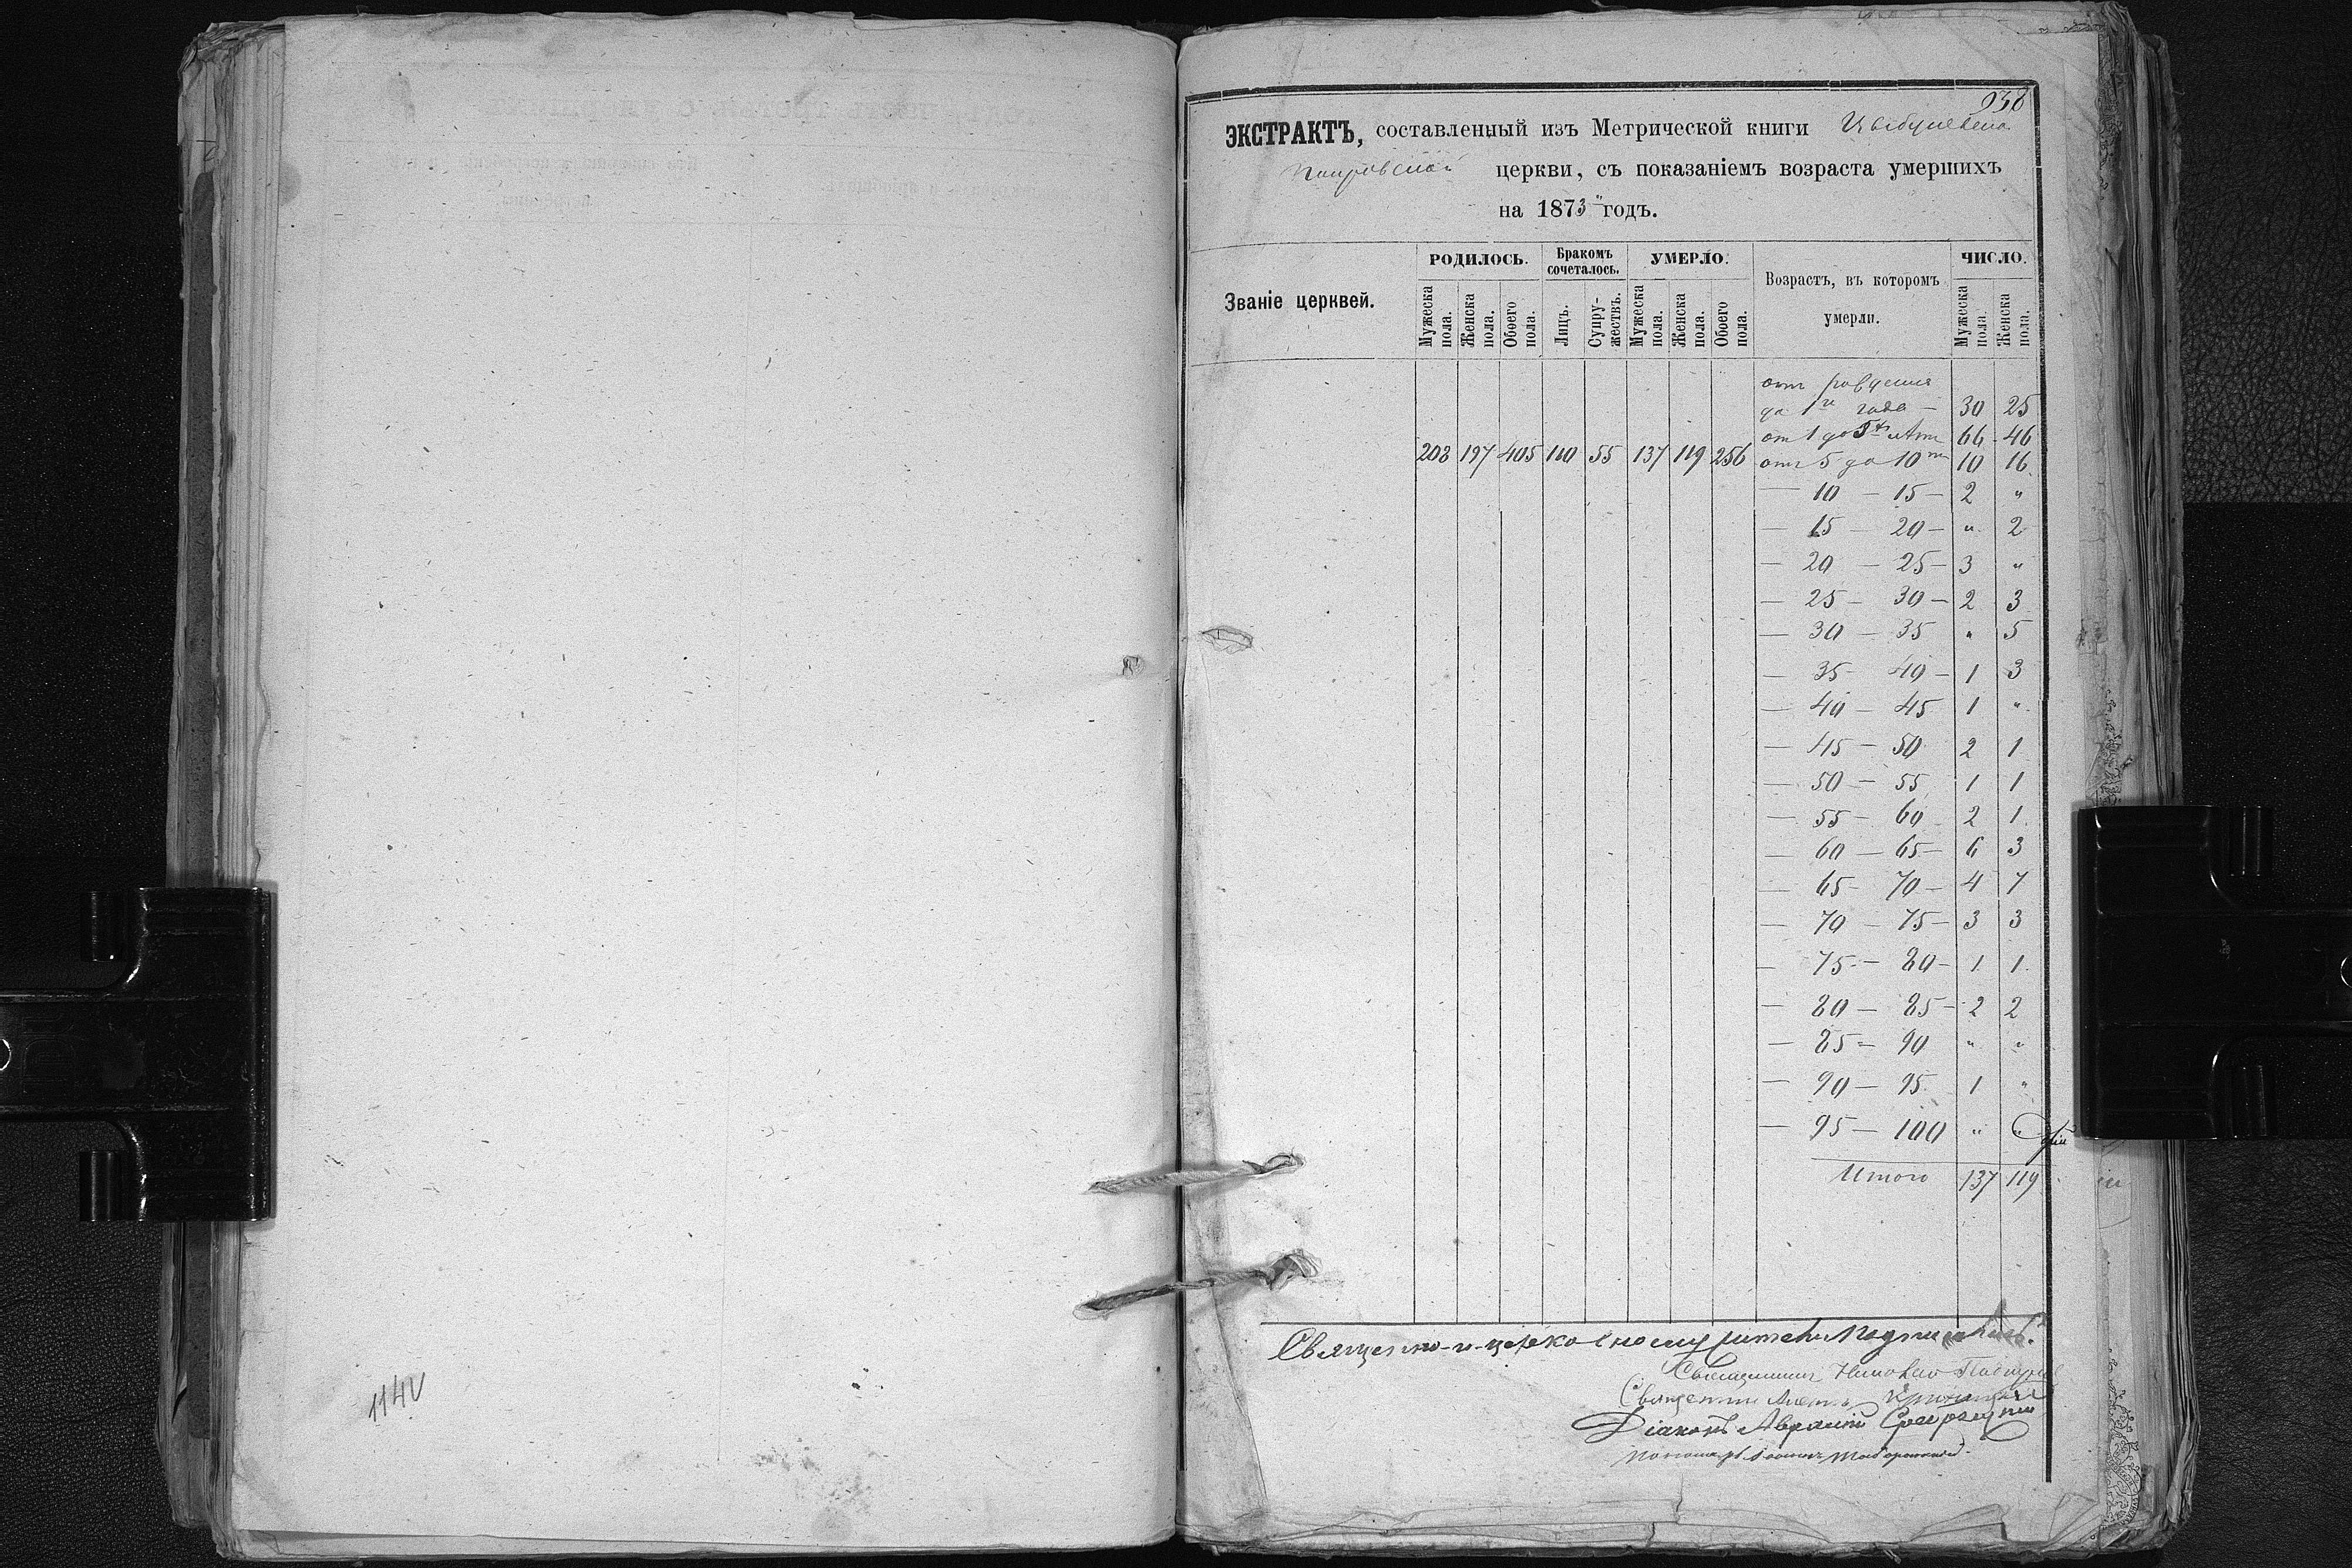 938
ЭКСТРАКТЪ, составленный изъ Метрической книги
Покровской церкви, съ показаніемъ возраста умершихъ
на 1873 годъ.
Званіе церквей.
РОДИЛОСЬ.
Мужеска пола.
Женска пола.
Обоего пола.
Бракомъ сочеталось.
Лицъ.
Супружествъ.
УМЕРЛО.
Мужеска пола.
Женска пола.
Обоего пола.
Возрастъ, въ которомъ
умерли.
ЧИСЛО.
Мужеска пола.
Женска пола.
отъ рожденія
до 1го года — 30 25
от 1 до 5ти лѣтъ 66 46
208 197 405 110 55 137 119 256 отъ 5 до 10ти 10 16
— 10 — 15 — 2 "
— 15 — 20 — " 2
— 20 — 25 — 3 "
— 25 — 30 — 2 3
— 30 — 35 " 5
— 35 — 40 — 1 3
— 40 — 45 1 "
— 45 — 50 2 1
— 50 — 55 1 1
— 55 — 60 2 1
— 60 — 65 — 6 3
— 65 — 70 — 4 7
— 70 — 75 — 3 3
— 75 — 80 — 1 1
— 80 — 85 — 2 2
— 85 — 90 " "
— 90 — 95 1 "
— 95 — 100 " "
Итого 137 119
Священно-и-церковнослужители
Священникъ
Священникъ
Діаконъ
Пономарь
114V